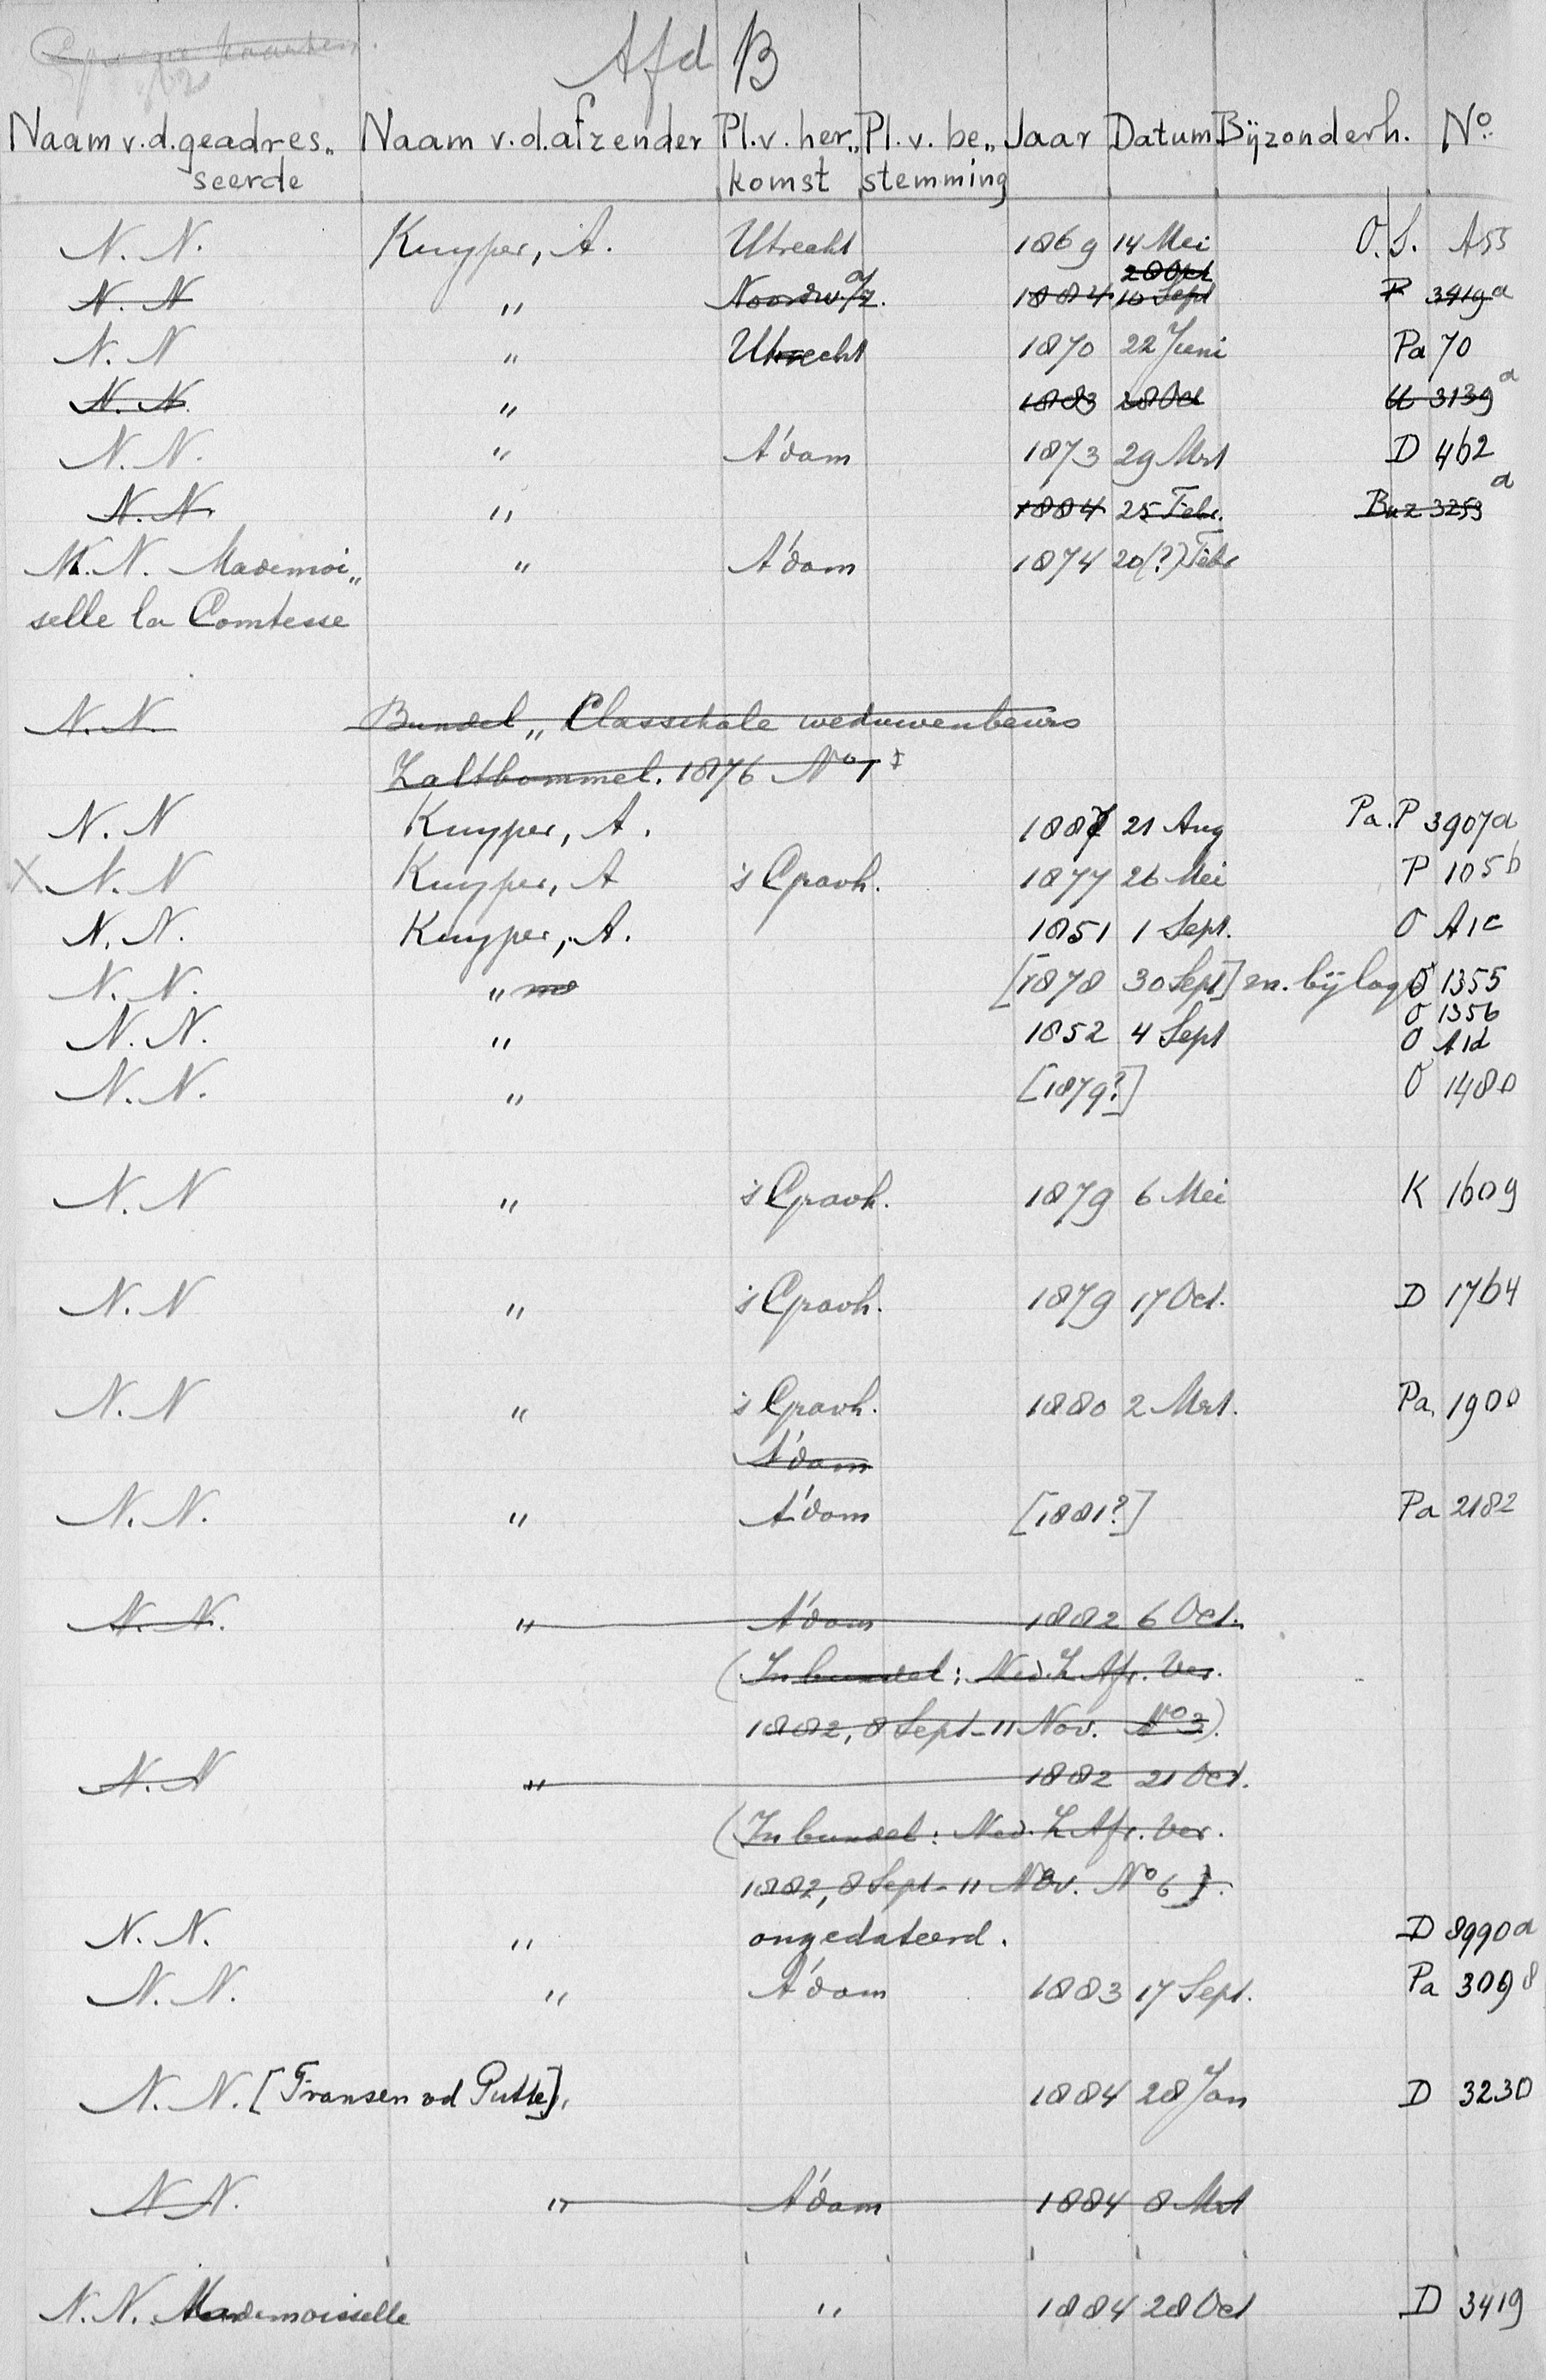 Afd B
Naam v.d. geadres„ Naam v.d. afzender Pl. v. her„ Pl. v. be„ Jaar Datum Bijzonderh. No.
seerde komst stemming
N. N. Kuyper, A. Utrecht 1869 14 Mei O. S. A55
28 Oct
N. N " Noordw. a/z. 1884 10 Sept P 3419a
N. N " Utrecht 1870 22 Juni Pa 70
N. N. " 1883 28 Oct 3139a
N. N. " A'dam 1873 29 Mrt D 462
N. N " 1884 25 Febr. Buz 3253a
N. N. Mademoi„ " A'dam 1874 20(?) Febr
selle la Comtesse
N. N. Bundel „Classikale weduwenbeurs
Zaltbommel. 1876 No 1
N. N Kuyper, A. 1887 21 Aug Pa. P 3907a
X N. N Kuyper, A 's Gravh. 1877 26 Mei P 105b
N. N. Kuyper, A. 1851 1 Sept. O A1c
N. N. " [1878 30 Sept] m. bijlage O 1355
O 1356
N. N. " 1852 4 Sept O A1d
N. N. " [1879?] O 1480
N. N " 's Gravh. 1879 6 Mei K 1609
N. N " 's Gravh. 1879 17 Oct. D 1764
N. N " 's Gravh. 1880 2 Mrt. Pa. 1900
A'dam
N. N. " A'dam [1881?] Pa 2182
N. N. " A'dam 1882 6 Oct.
(In bundel: Ned. Z. Afr. Ver.
1882, 8 Sept - 11 Nov. No 3).
N. N " 1882 21 Oct.
(In bundel: Ned. Z. Afr. Ver.
1882, 8 Sept - 11 Nov. No 6).
N. N. " ongedateerd. D 8990a
N. N. " A'dam 1883 17 Sept. Pa 3098
N. N. [Fransen vd Putte], 1884 28 Jan D 3230
N N. " A'dam 1884 8 Mrt
N. N. Mademoiselle " 1884 28 Oct D 3419